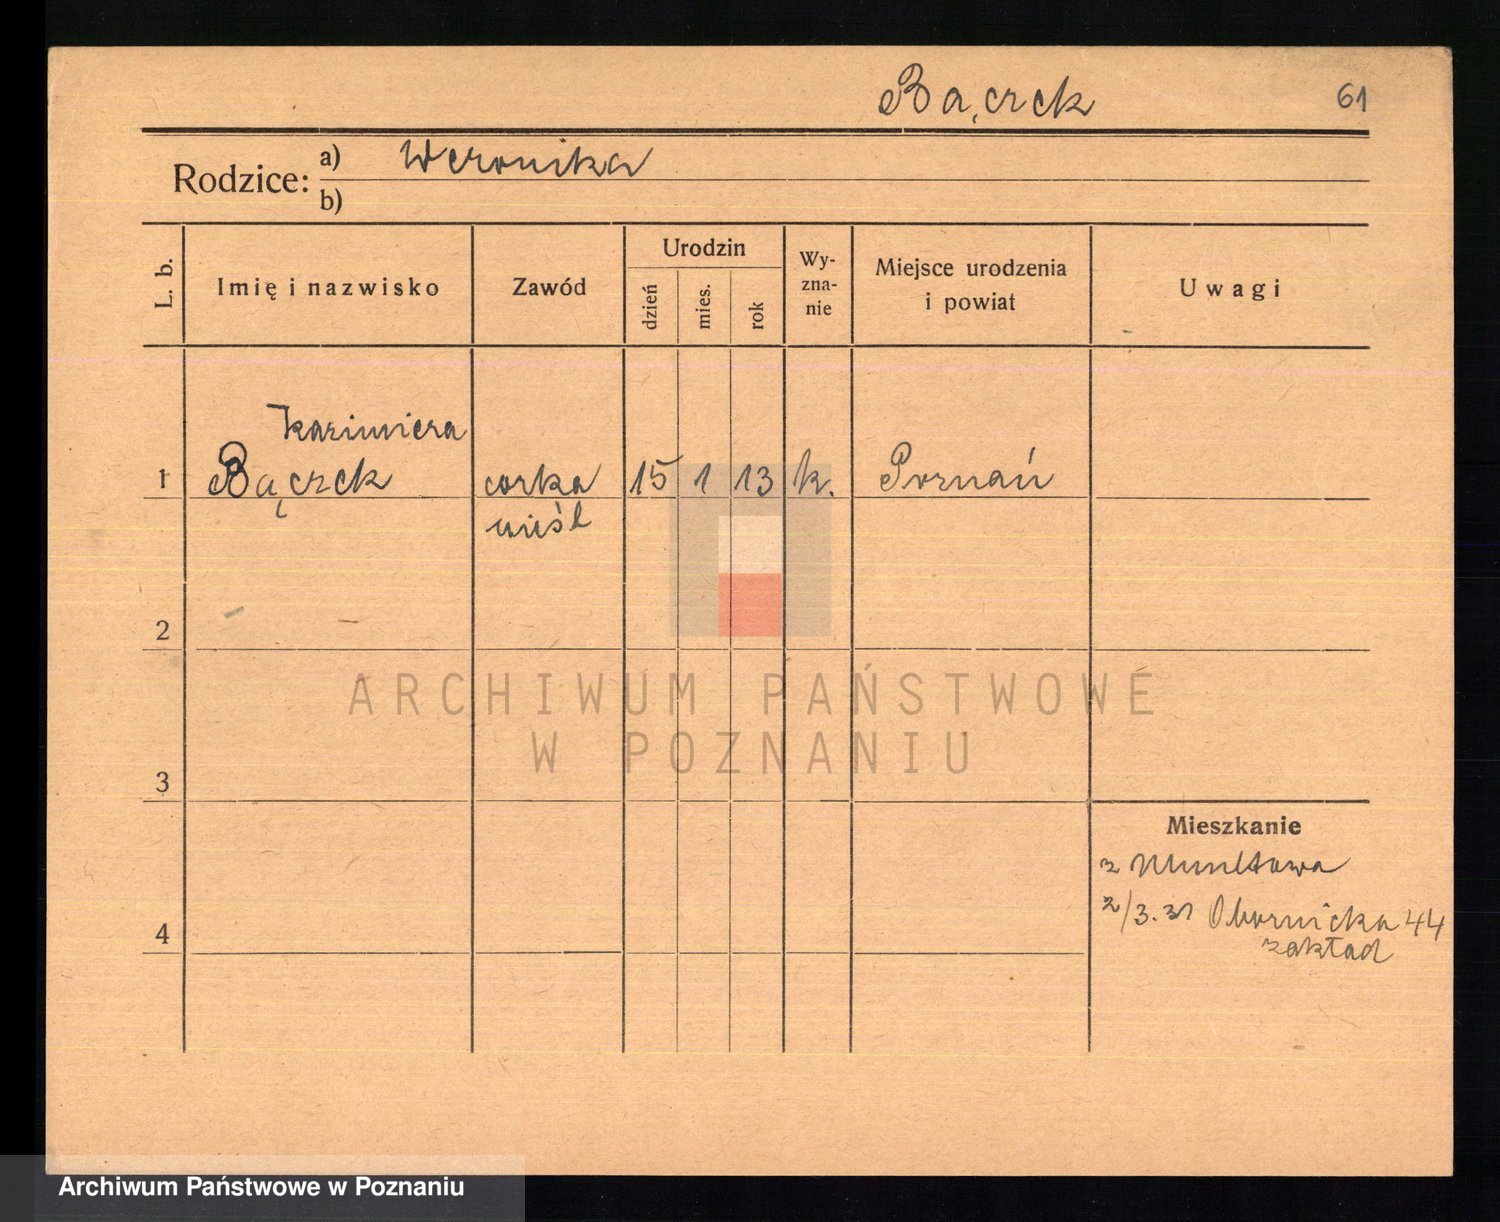 Bączek 61
Rodzice: a) Weronika
b)
L. b. Imię i nazwisko Zawód Urodzin dzień mies. rok Wy-zna-nie Miejsce urodzenia i powiat Uwagi
Kazimiera
1 Bączek corka 15 1 13 k. Poznań
nieśl
2
ARCHIWUM PAŃSTWOWE
W POZNANIU
3
Mieszkanie
z Umultowa
2/3.31 Obornicka 44
4 zakład
Archiwum Państwowe w Poznaniu